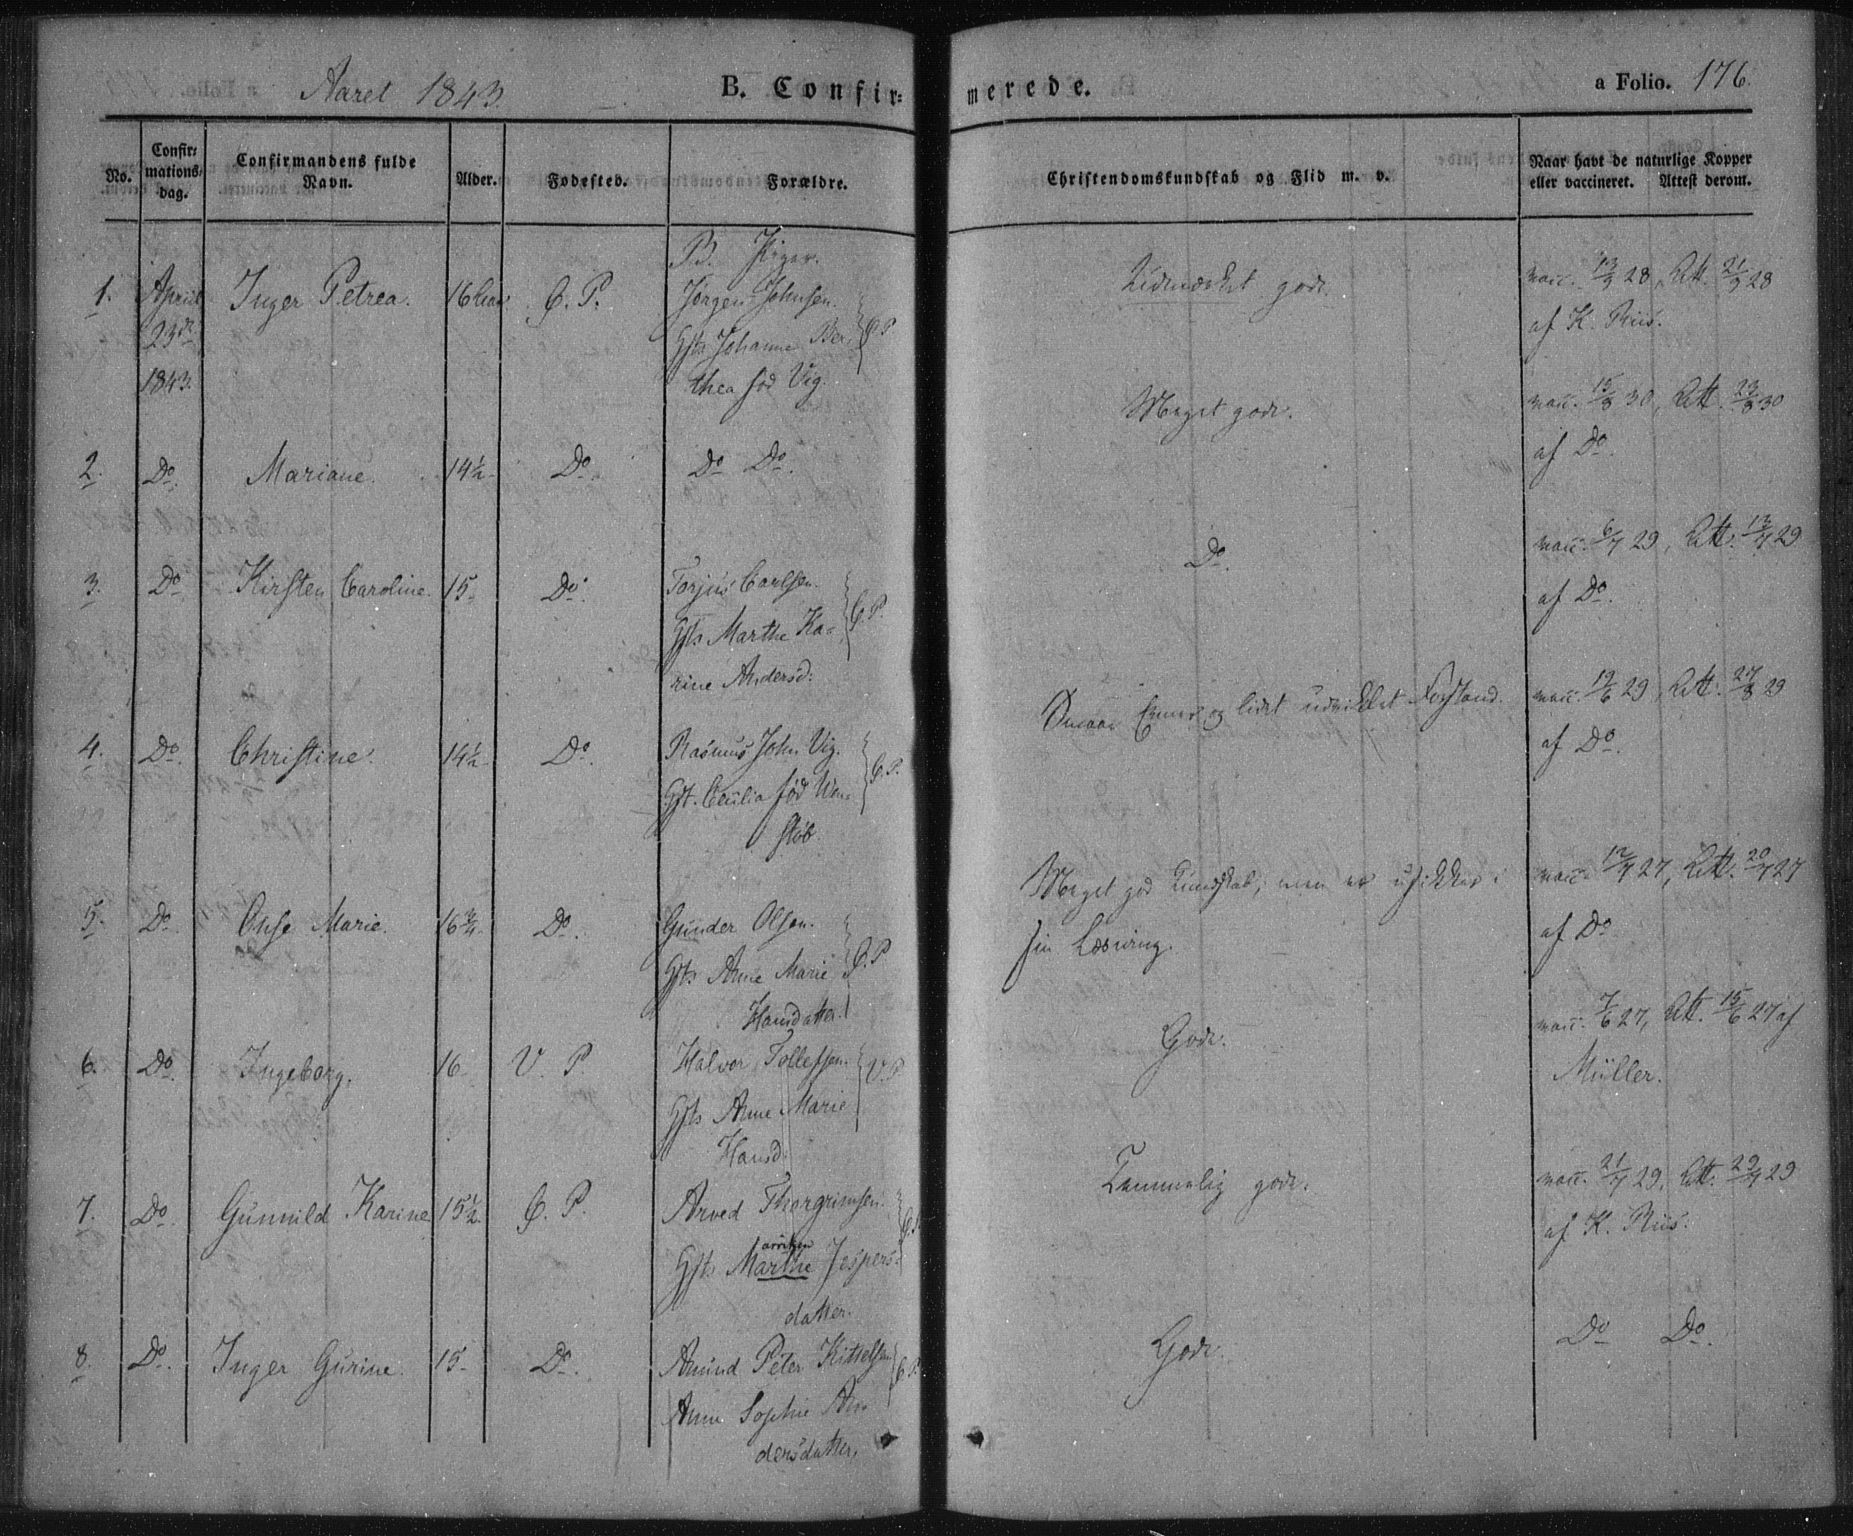 Aaret 1843.
B. Confirmerede.
a Folio. 176.
No.
Confirmationsdag.
Confirmandens fulde Navn.
Alder.
Fødested.
Forældre.
Christendomskundskab og Flid m. v.
Naar havt de naturlige Kopper eller vaccineret. Attest derom.
B. Piger.
1. April 23de 1843. Inger Petrea. 16 C. P. Jørgen Johnsen. vacc. 13/9 28, Att. 21/9 28
Gfts Johanne Ber- C. P. af K. Riis.
thea fød Vig.
2. Do. Mariane. 14½ Do. Do Do. Meget gode. vacc. 15/8 30, Att. 23/8 30
af Do.
3. Do Kirsten Caroline. 15. Do. Torjus Carlsen. Do. vacc. 6/7 29, Att. 13/7 29
Gfts Marthe Ka- C. P. af Do.
rine Andersd:
4. Do. Christine. 14½ Do. Rasmus John Vig. Smaae Evner og lidet udviklet Forstand. vacc. 19/6 29, Att. 27/8 29
Gft. Cecilia fød Wen- C. P. af Do.
støb.
5. Do. Onse Marie. 16¾ Do. Gunder Olsen. Meget god Kundskab, men er usikker i vacc. 12/7 27, Att. 20/7 27
Gfts Anne Marie C. P. sin Læsning. af Do
Hansdatter.
6. Do. Ingeborg. 16. V. P. Halvor Tollefsen. V. P. Gode. vacc. 7/6 27, Att. 15/6 27 af
Gfts Anne Marie Müller.
Hansd.
7. Do. Gunnild Karine 15½ C. P. Arved Thorgrimsen. C. P. Temmelig gode. vacc. 21/7 29, Att. 29/7 29
Gfts Marthe Jespers- af K. Riis.
datter.
8. Do. Inger Gurine. 15. Do. Amund Peter Kittelsen C. P. Gode. Do Do.
Anne Sophie An-
dersdatter.